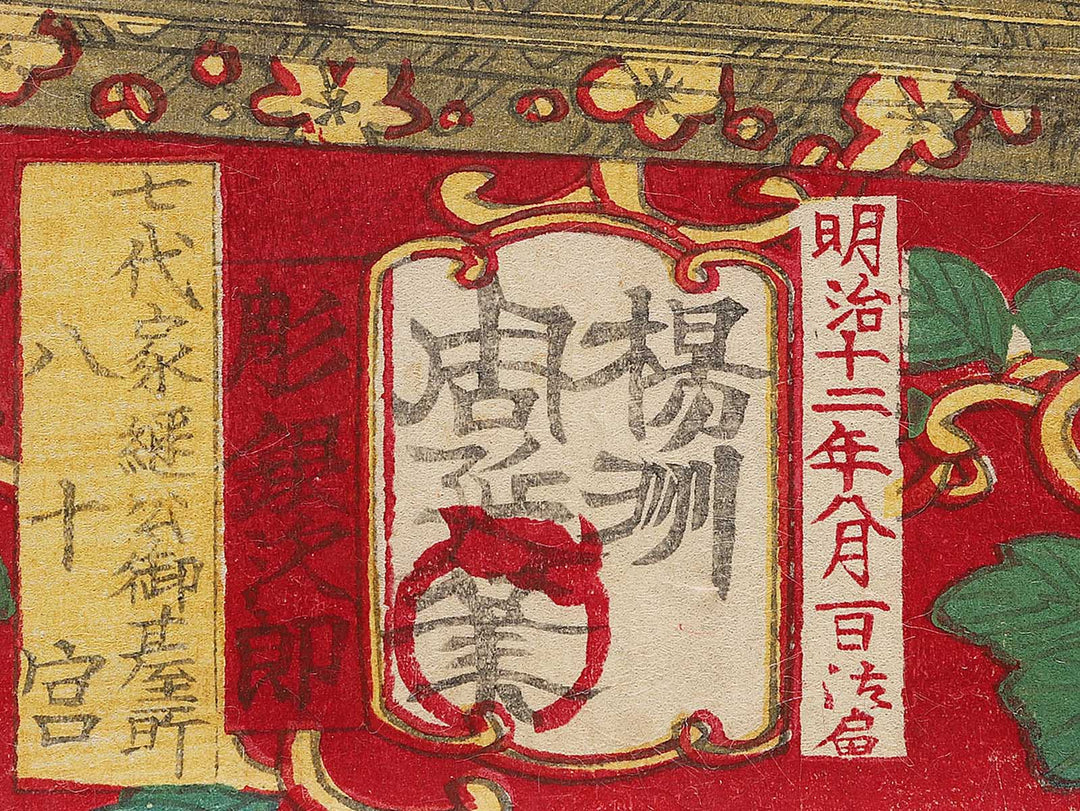 明治十二年八月 日御届
楊洲
周延筆
彫銀次郎
七代家継公御台所
八十宮